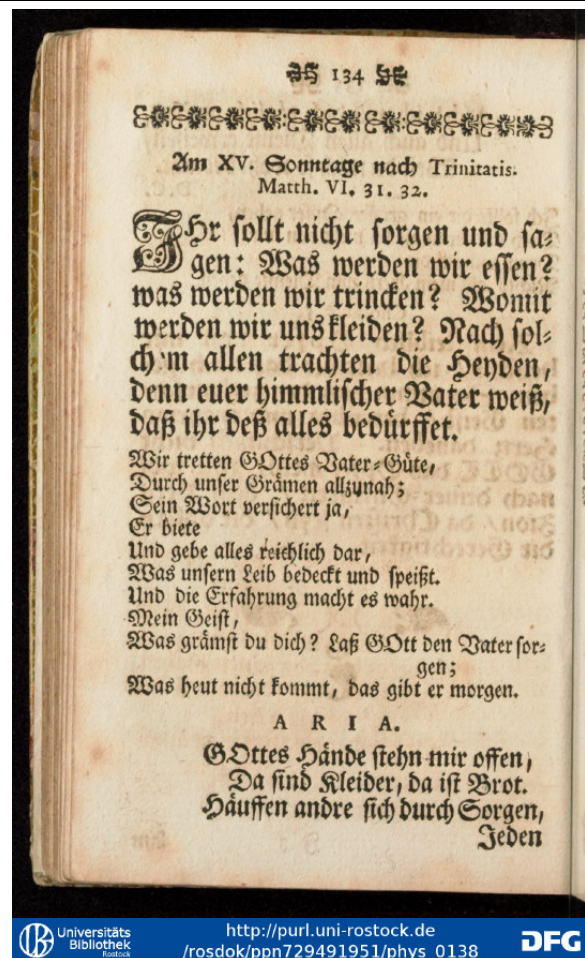 134
Am XV. Sonntage nach Trinitatis.
Matth. VI. 31. 32.
IHr sollt nicht sorgen und sa⸗
gen: Was werden wir essen?
was werden wir trincken? Womit
werden wir uns kleiden? Nach sol⸗
ch'm allen trachten die Heyden,
denn euer himmlischer Vater weiß,
daß ihr deß alles bedürffet.
Wir tretten GOttes Vater⸗Güte,
Durch unser Grämen allzunah;
Sein Wort versichert ja,
Er biete
Und gebe alles reichlich dar,
Was unsern Leib bedeckt und speißt.
Und die Erfahrung macht es wahr.
Mein Geist,
Was grämst du dich? Laß GOtt den Vater sor⸗
gen;
Was heut nicht kommt, das gibt er morgen.
ARIA.
GOttes Hände stehn mir offen,
Da sind Kleider, da ist Brot.
Häuffen andre sich durch Sorgen,
Jeden
Universitäts
Bibliothek
Rostock
http://purl.uni-rostock.de
/rosdok/ppn729491951/phys_0138
DFG